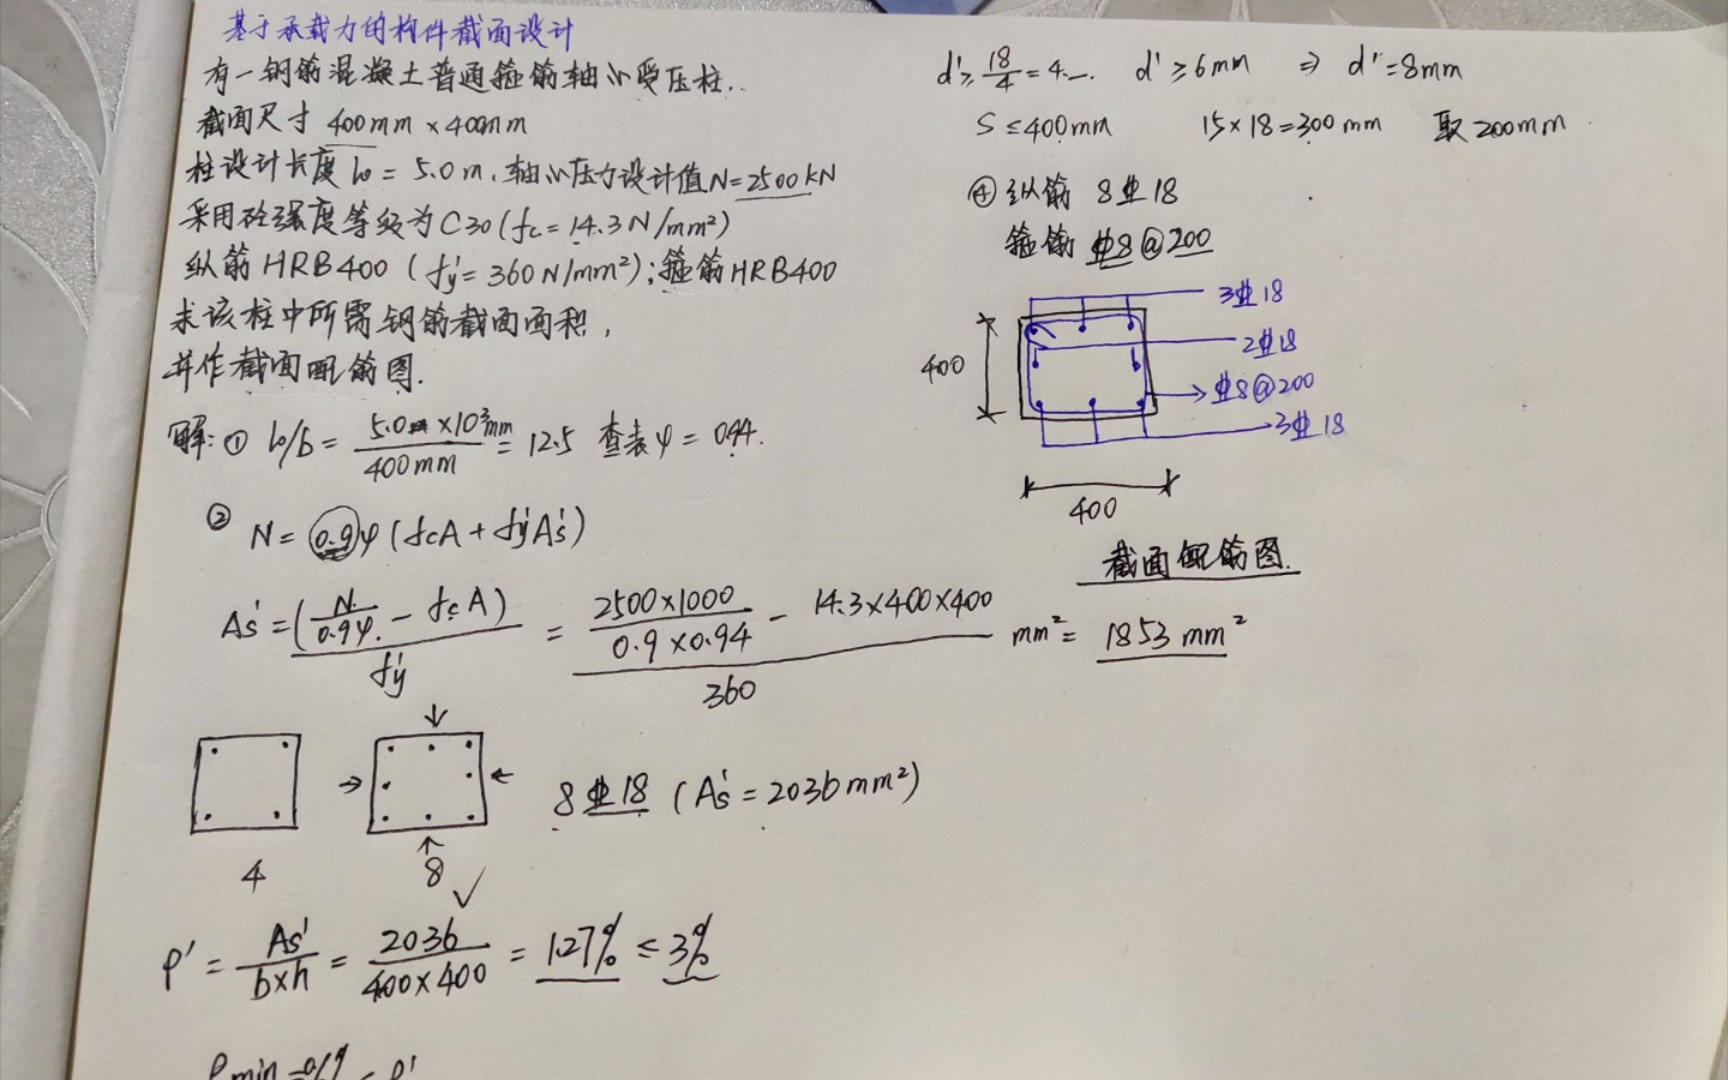 基于承载力的构件截面设计
有一钢筋混凝土普通箍筋轴心受压柱.
截面尺寸 400mm×400mm
柱设计长度 l₀ = 5.0m, 轴心压力设计值N=2500kN
采用砼强度等级为C30(fc=14.3N/mm²)
纵筋HRB400 (fy'=360N/mm²);箍筋HRB400
求该柱中所需钢筋截面面积,
并作截面配筋图.
解: ① l₀/b = 5.0×10³mm / 400mm = 12.5 查表φ = 0.94.
② N = 0.9φ(fcA + fy'As')
As' = (N/0.9φ - fcA) / fy' = (2500×1000 / 0.9×0.94 - 14.3×400×400) / 360 mm² = 1853 mm²
4
8 ✓
8⏀18 (As' = 2036mm²)
ρ' = As' / b×h = 2036 / 400×400 = 1.27% ≤ 3%
ρmin
ρ'
d' ≥ 18/4 = 4.— d' ≥ 6mm ⇒ d' = 8mm
S ≤ 400mm 15×18=300mm 取200mm
④ 纵筋 8⏀18
箍筋 ⏀8@200
3⏀18
2⏀18
⏀8@200
3⏀18
400
400
截面配筋图.